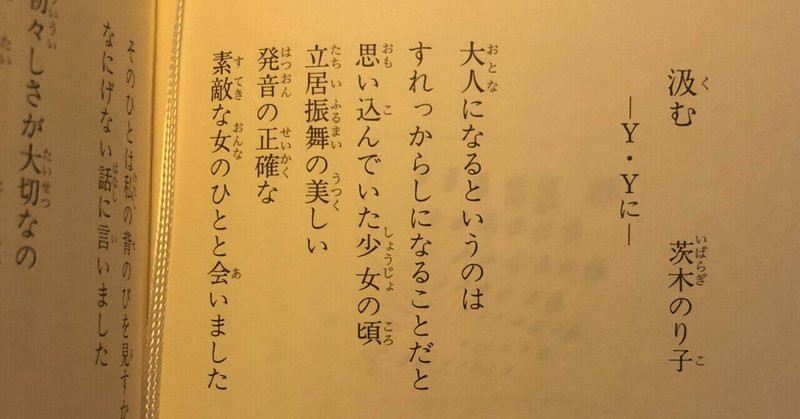 汲む
茨木のり子
―Y・Yに―
大人になるというのは
すれっからしになることだと
思い込んでいた少女の頃
立居振舞の美しい
発音の正確な
素敵な女のひとと会いました
そのひとは私の背のびを見すか
なにげない話に言いました
々しさが大切なの